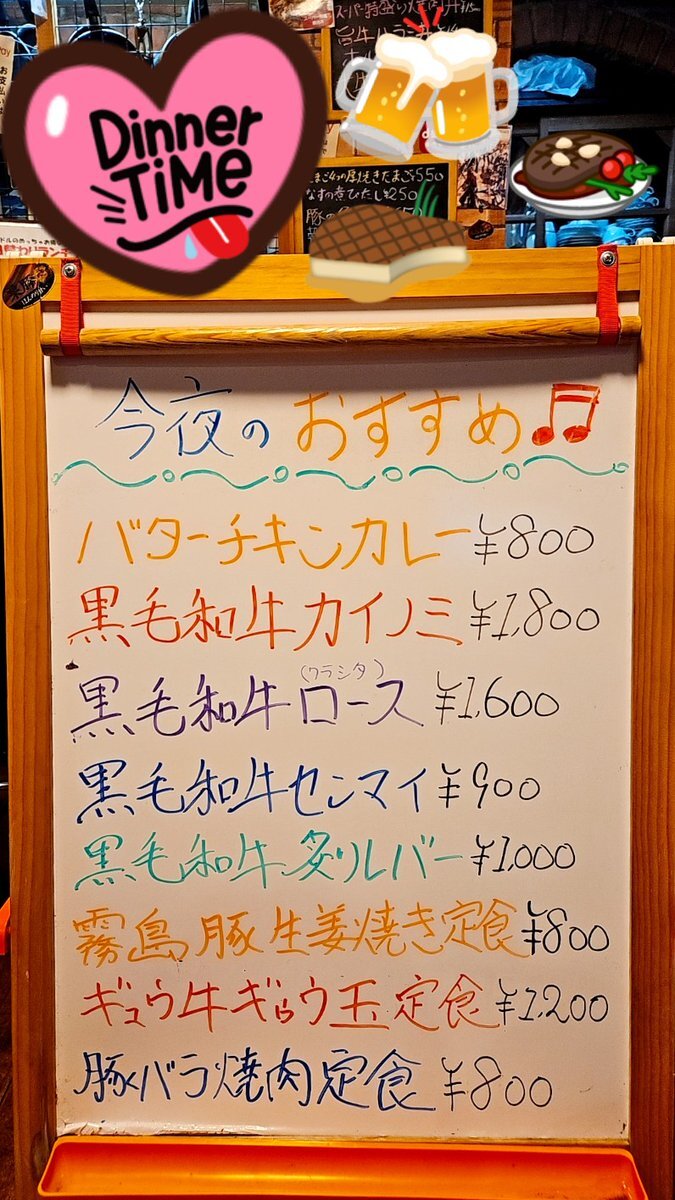 Dinner
TiME
今夜のおすすめ♫
バターチキンカレー ¥800
黒毛和牛カイノミ ¥1,800
(クラシタ)
黒毛和牛ロース ¥1,600
黒毛和牛センマイ ¥900
黒毛和牛炙りレバー ¥1,000
霧島豚生姜焼き定食 ¥800
ギュウ牛ギョウ玉定食 ¥1,200
豚バラ焼肉定食 ¥800
厚焼きたまご 550
なすの煮びたし ¥250